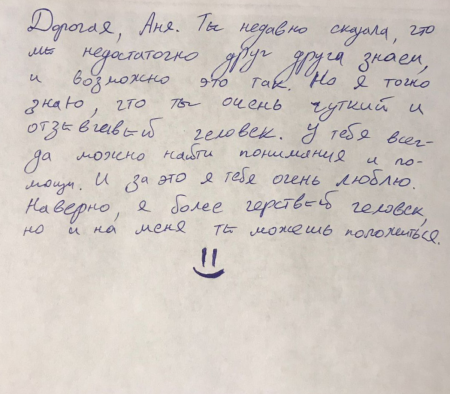 Дорогая, Аня. Ты недавно сказала, что
мы недостаточно друг друга знаем,
и возможно это так. Но я точно
знаю, что ты очень чуткий и
отзывчивый человек. У тебя всег-
да можно найти понимания и по-
мощи. И за это я тебя очень люблю.
Наверно, я более черствый человек,
но и на меня ты можешь положиться.